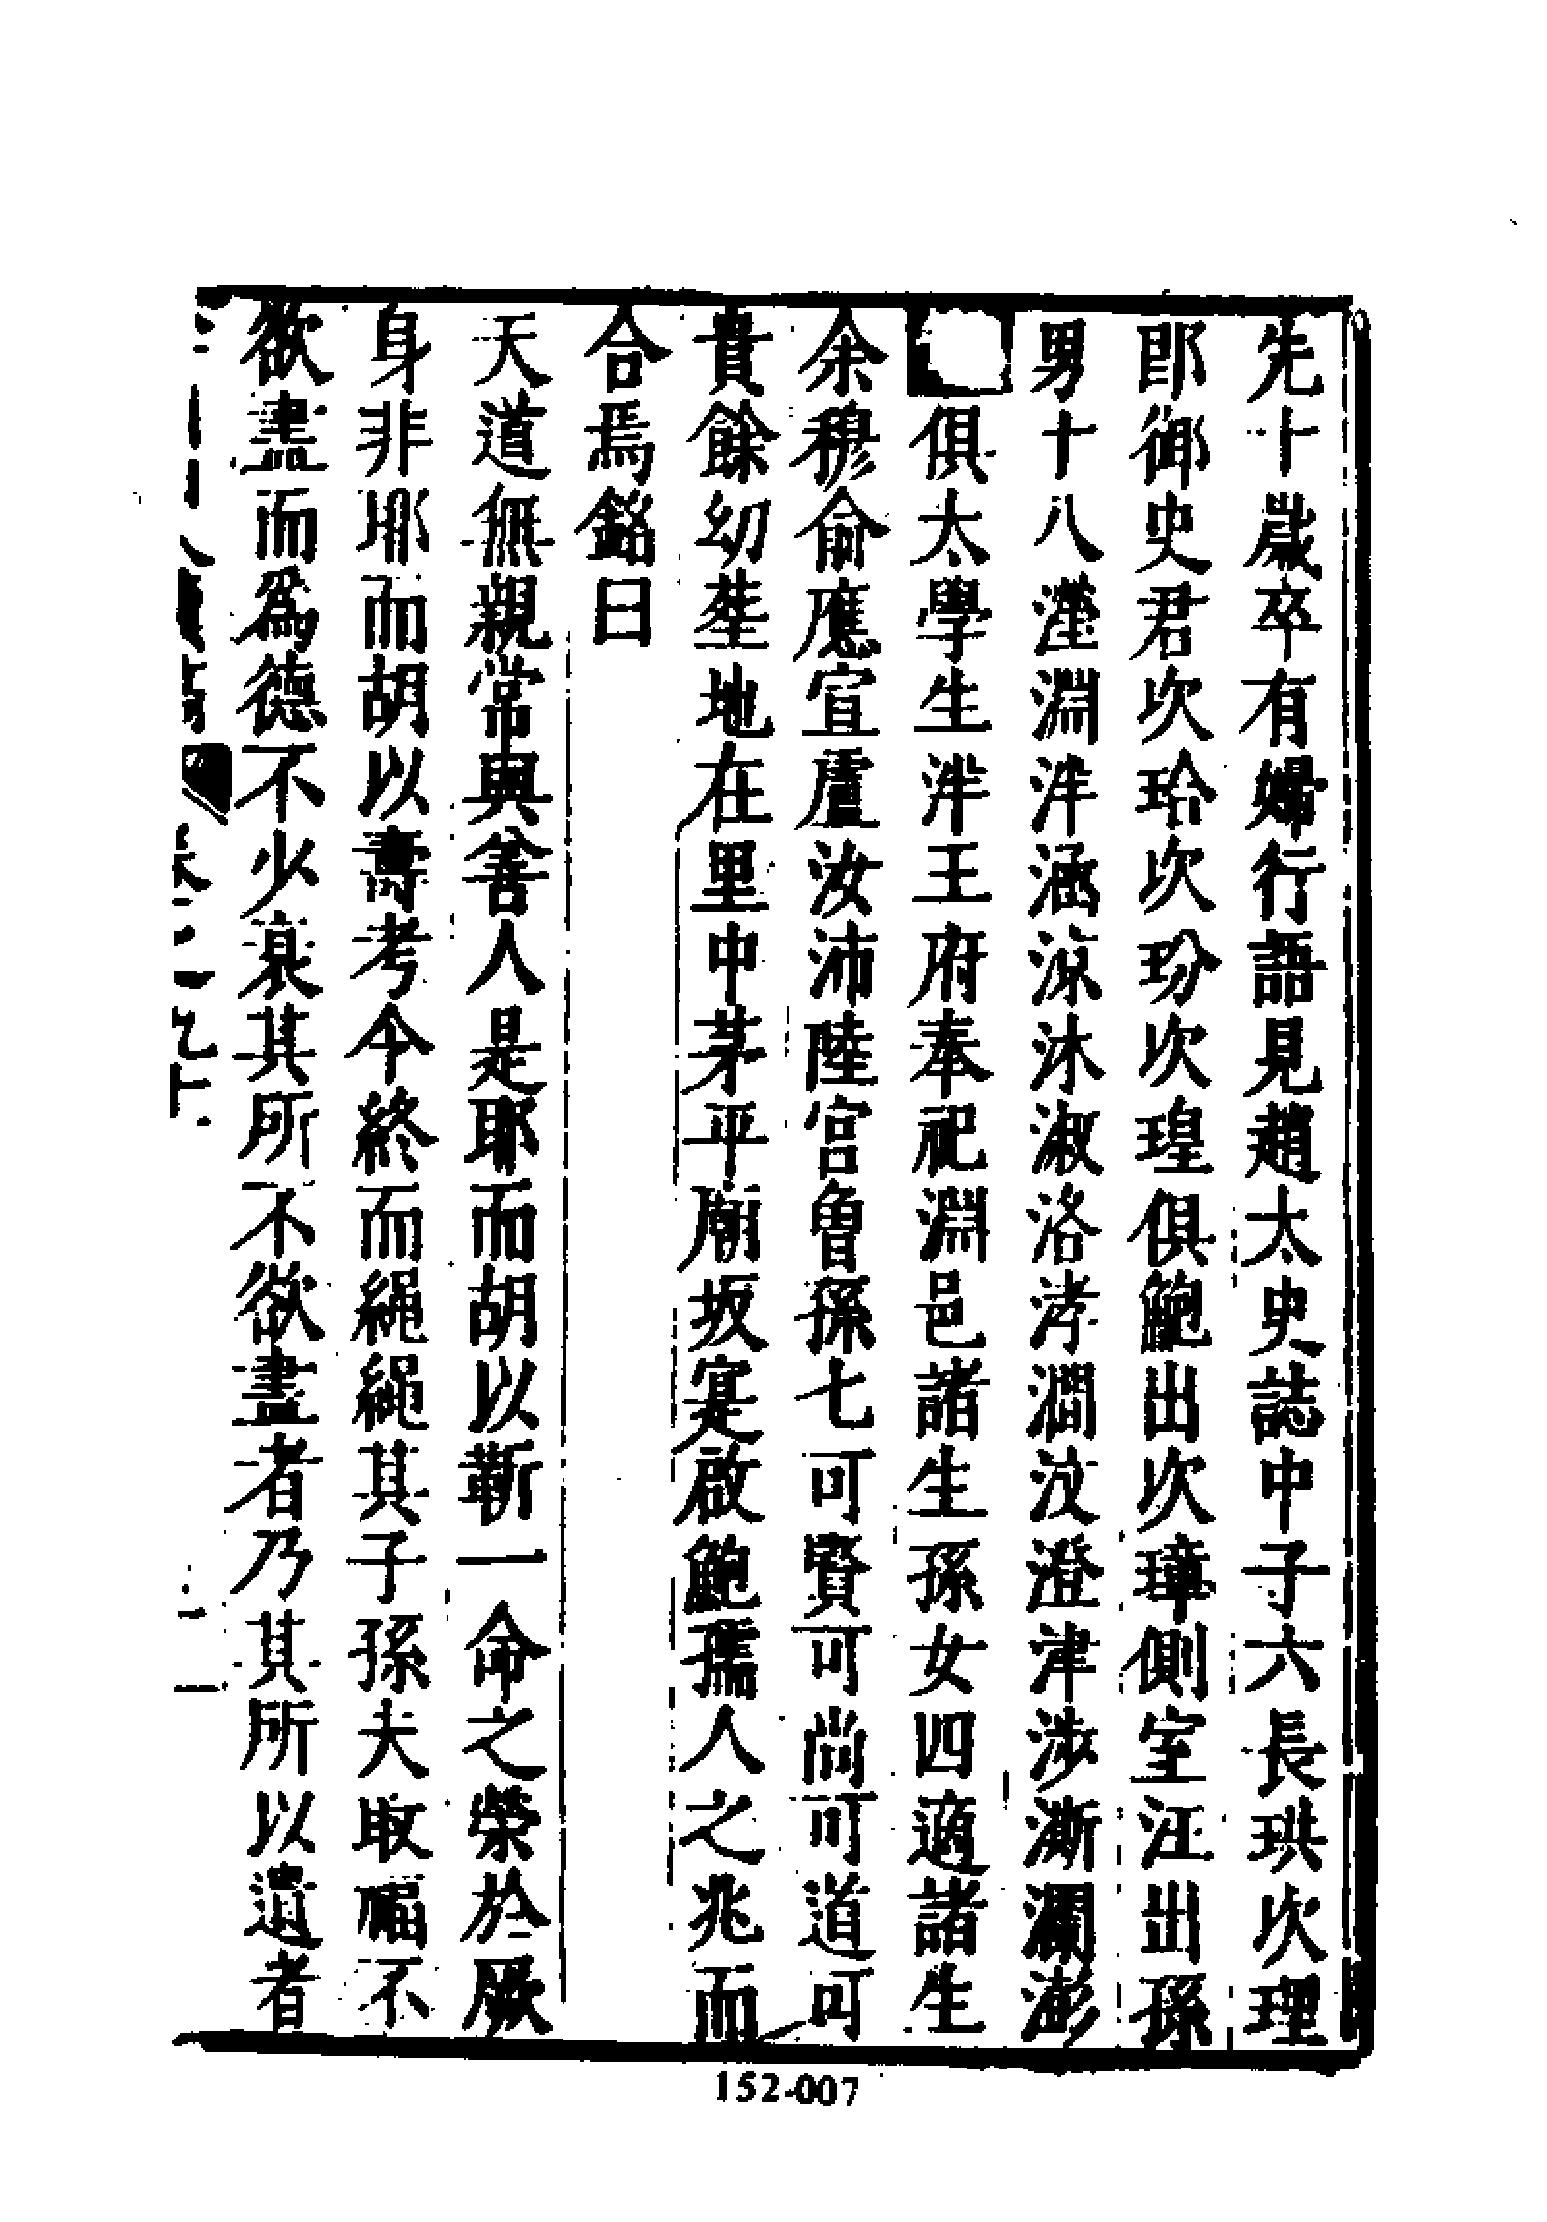 先十歲卒有婦行語見趙太史誌中子六長珙次理
即御史君次珨次玢次瑝俱鮑出次璋側室汪出孫
男十八瀅淵泮涵涼沐淑洛涍澗汶澄津涉澌瀾澎
俱太學生泮王府奉祀淵邑諸生孫女四適諸生
余穆俞應宣盧汝沛陸宮曾孫七可賢可尚可道可
貴餘幼塟地在里中茅平廟坂寔啟鮑孺人之兆而
合焉銘曰
天道無親常與善人是耶而胡以蘄一命之榮於厥
身非耶而胡以壽考令終而繩繩其子孫夫取福不
欲盡而為德不少衰其所不欲盡者乃其所以遺者
152-007